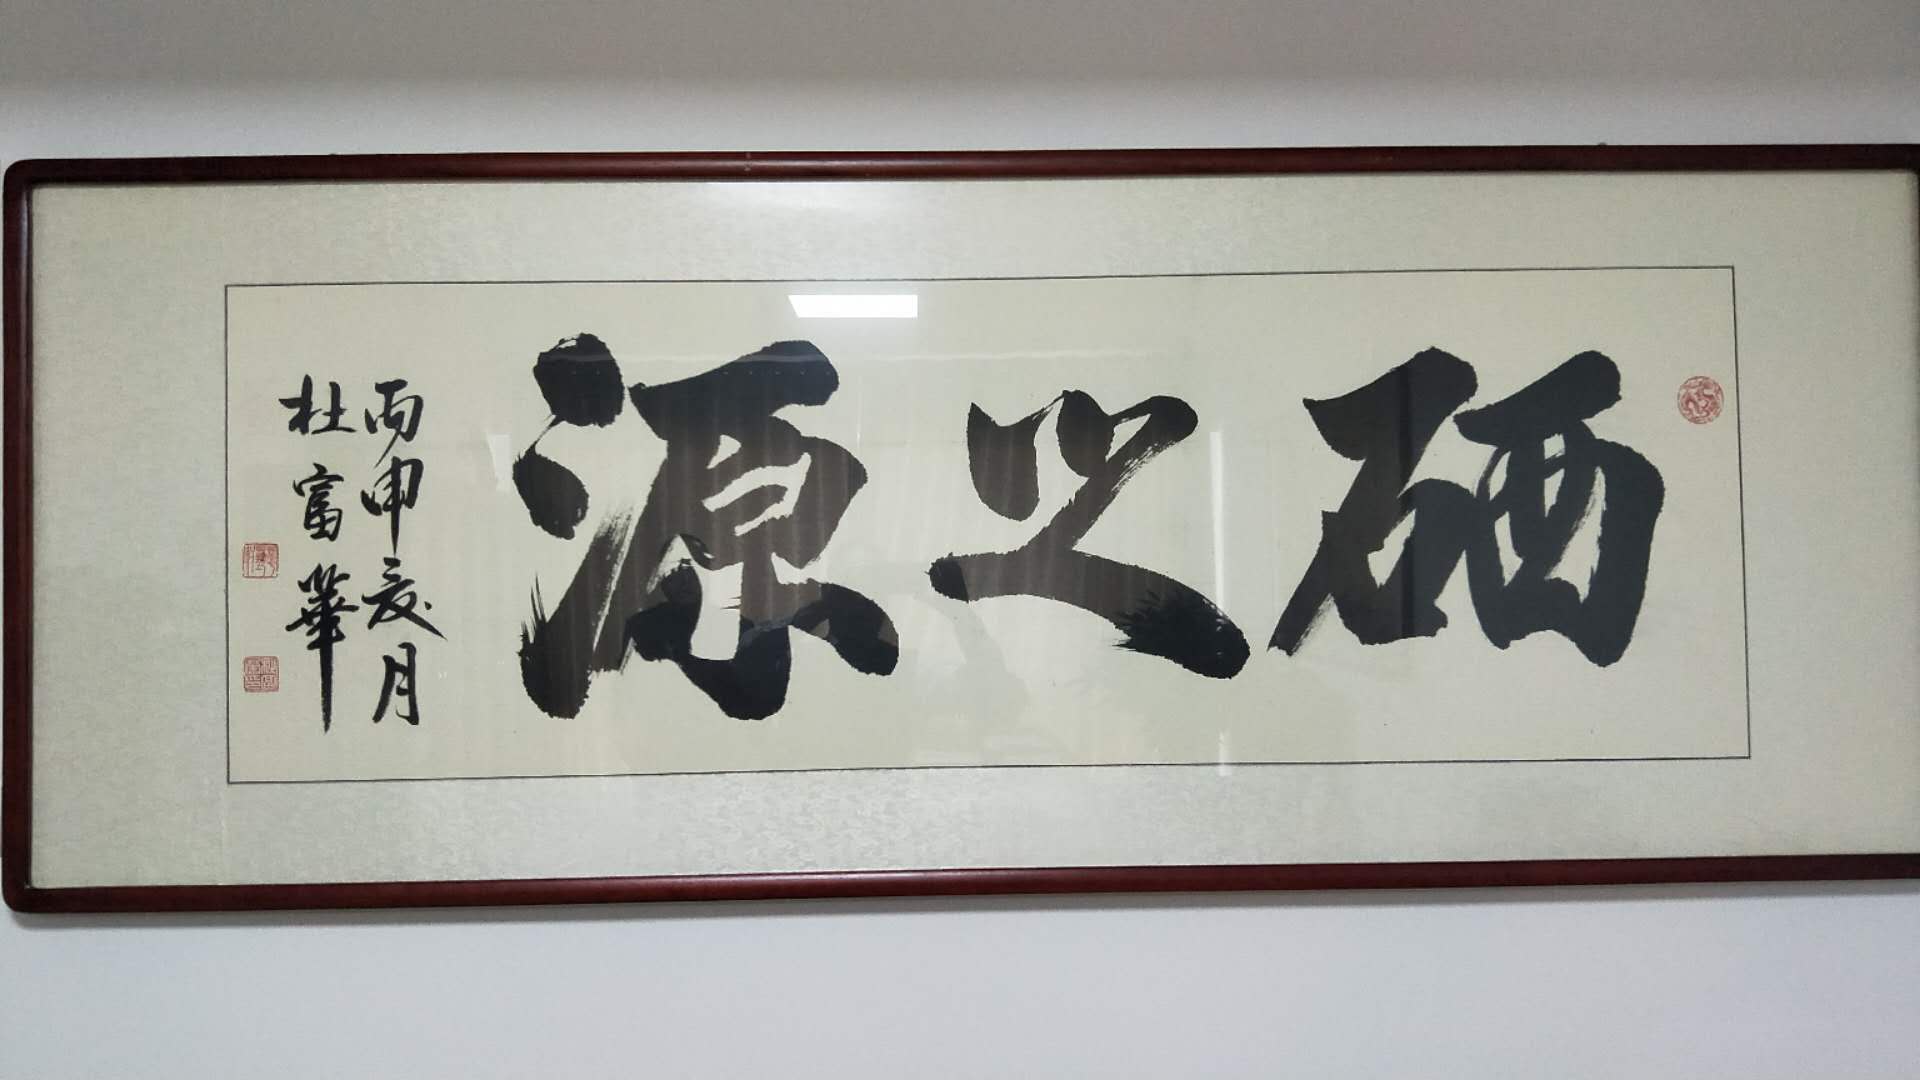 硒之源
丙申夏月
杜富華